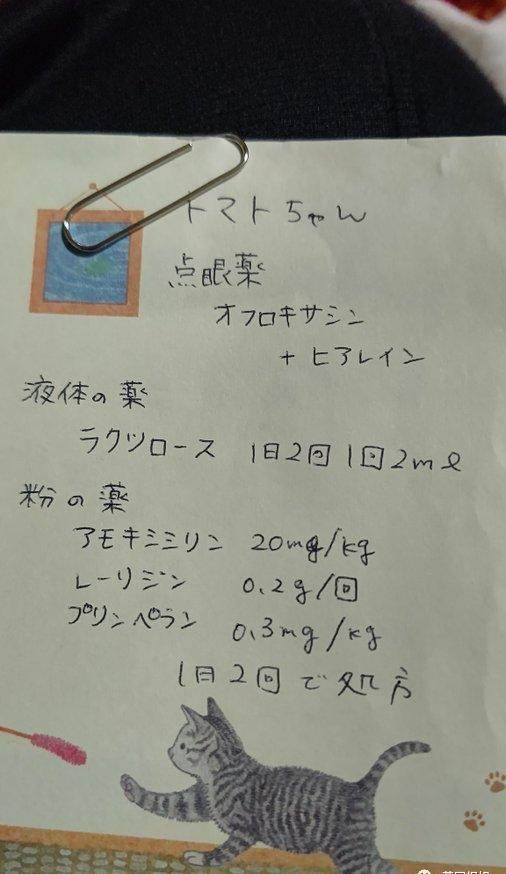 トマトちゃん
点眼薬
オフロキサシン
+ ヒアレイン
液体の薬
ラクツロース 1日2回 1回2ml
粉の薬
アモキシシリン 20mg/kg
L-リジン 0.2g/回
プリンペラン 0.3mg/kg
1日2回で処方